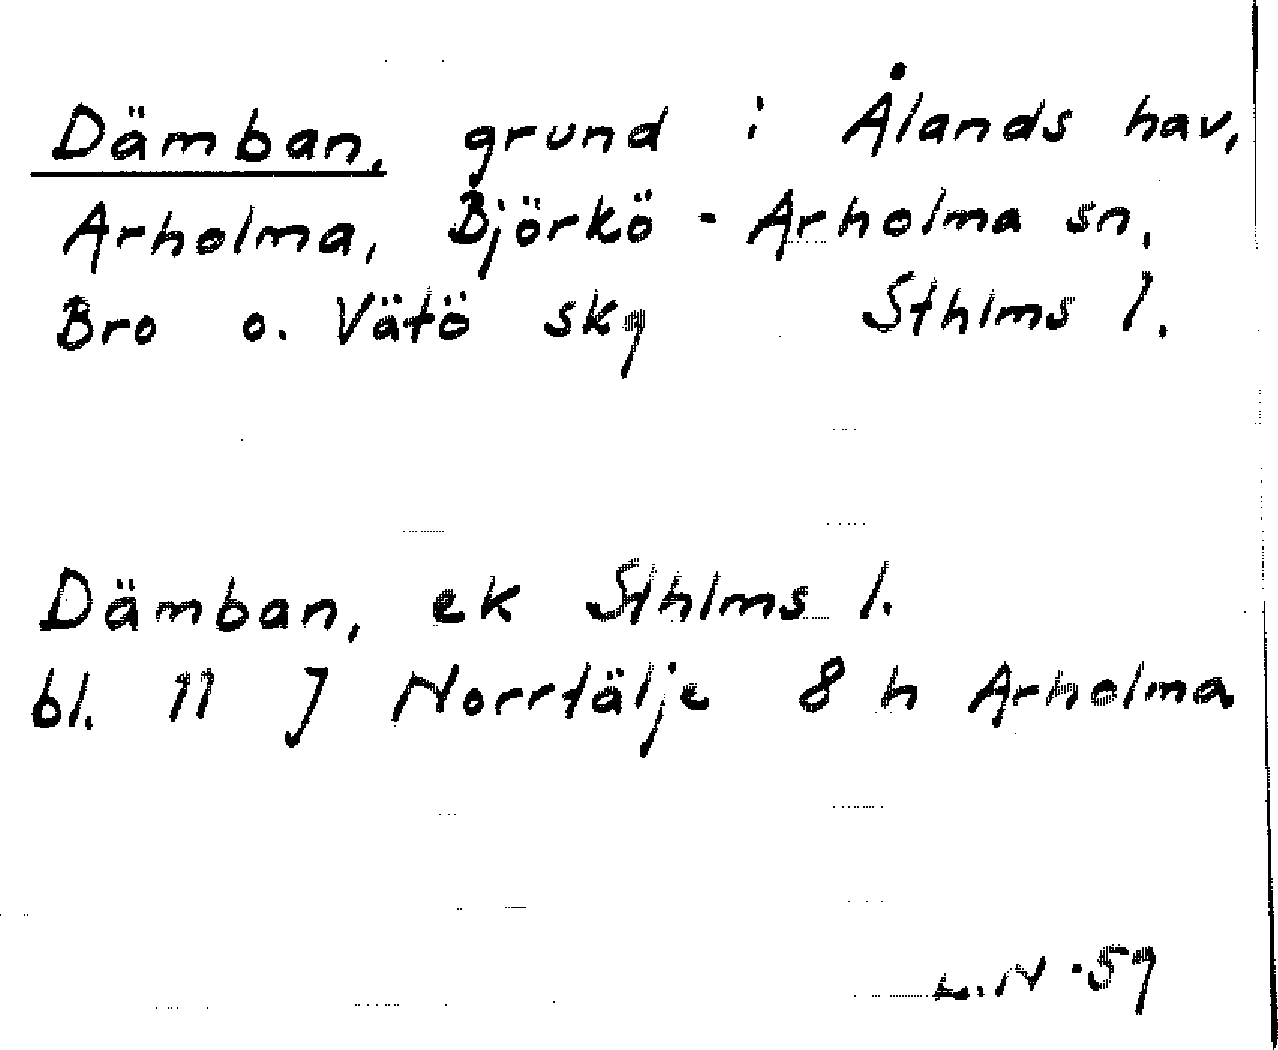 Dämban, grund i Ålands hav,
Arholma, Björkö - Arholma sn,
Bro o. Vätö skg Sthlms l.
Dämban, ek Sthlms l.
bl. 11 J Norrtälje 8 h Arholma
L.N -59